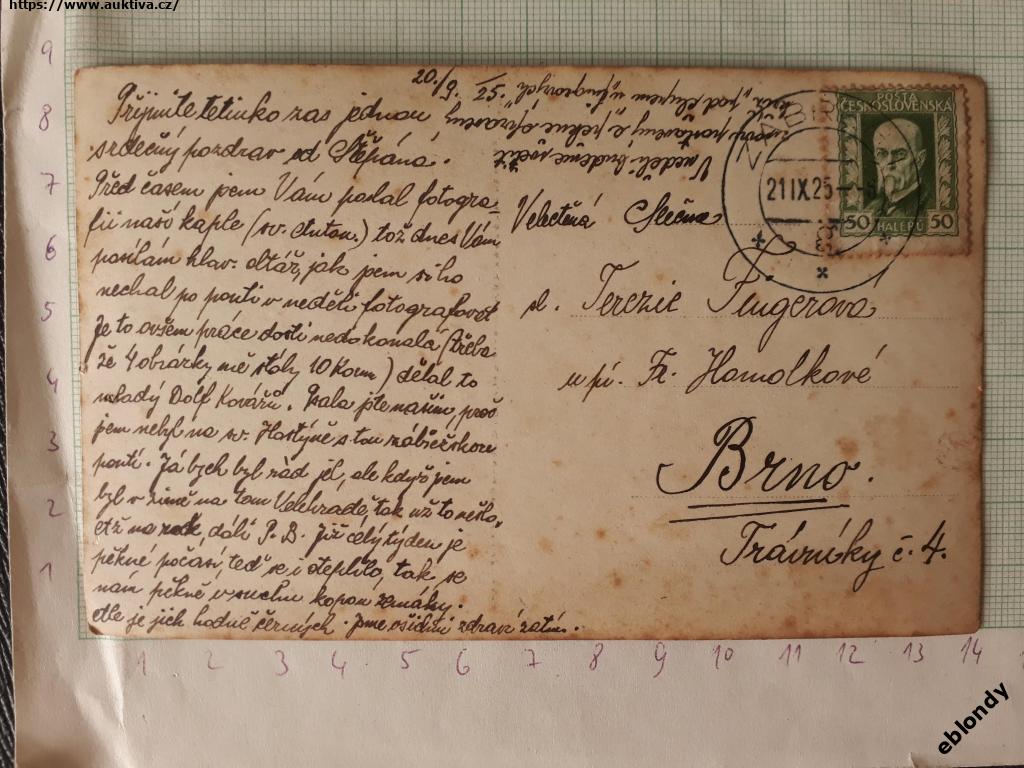 https://www.auktiva.cz/
20./9. 25.
Přijmite tetinko zas jednou
srdečný pozdrav od Štěpána.
Před časem jsem Vám poslal fotogra-
fii naší kaple (sv. Anton.) tož dnes Vám
posílám hlav. oltář, jak jsem si ho
nechal po pouti v neděli fotografovat
Je to ovšem práce dosti nedokonalá (třeba
že 4 obrázky mě stály 10 Korun) dělal to
mladý Dolf Kovářů. Psala jste našim, proč
jsem nebyl na sv. Hostýně s tou zábřežskou
poutí. Já bych byl rád jel, ale když jsem
byl v zimě na tom Velehradě, tak už to nešlo,
až na rok, dá-li P. B. Již celý týden je
pěkné počasí, teď se i oteplilo, tak se
nám pěkně v suchu kopou zemáky.
Ale je jich hodně černých. Jsme všichni zdraví zatím.
V neděli budeme světit
znovu postavený a pěkně opravený
kříž "pod chlupem u Fingrových"
Velectěná Slečna
sl. Terezie Fingerova
u pí. Fr. Homolkové
Brno.
Trávníky č. 4.
POŠTA
ČESKOSLOVENSKÁ
50 HALÉŘŮ 50
21 IX 25
9
8
7
6
5
4
3
2
1
1 2 3 4 5 6 7 8 9 10 11 12 13 14
eblondy